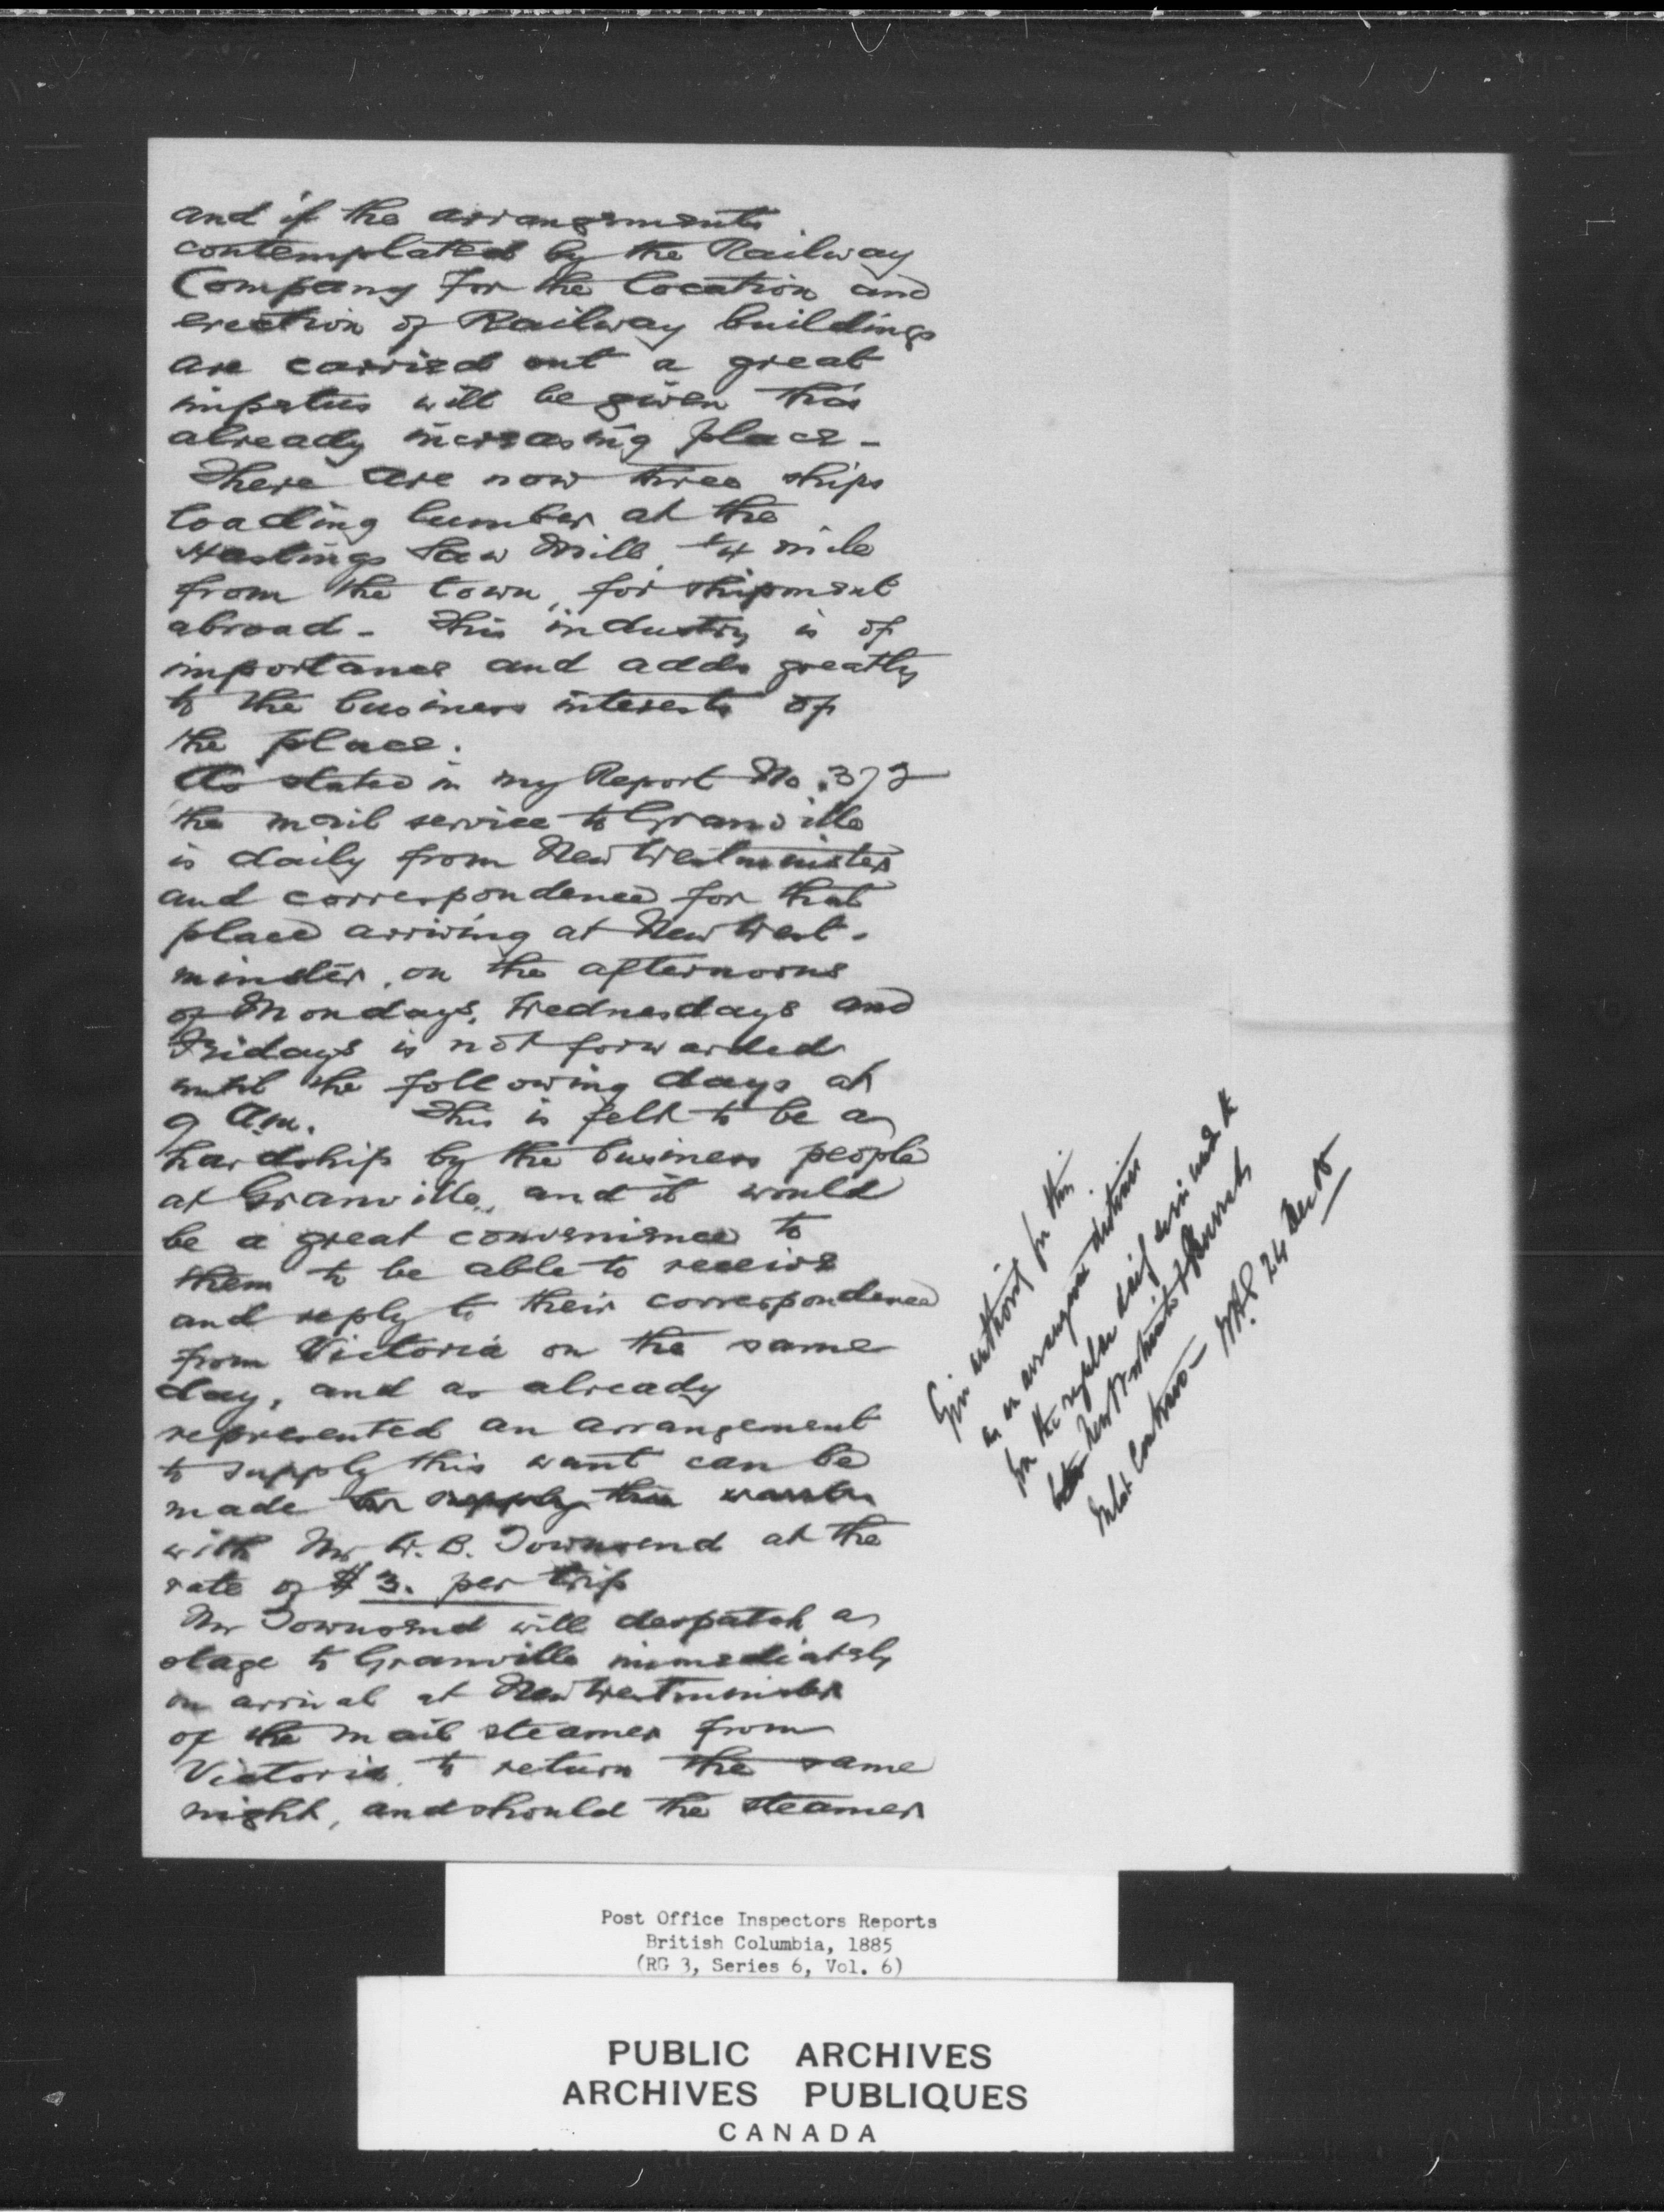 and if the arrangements
contemplated by the Railway
Company for the location and
erection of Railway buildings
are carried out a great
impetus will be given this
already increasing place -
There are now three ships
loading lumber at the
Hastings Saw Mill, 1/4 mile
from the town, for shipment
abroad - This industry is of
importance and adds greatly
to the business interests of
the place.
As stated in my Report No. 372
the mail service to Granville
is daily from New Westminster
and correspondence for that
place arriving at New West-
minster, on the afternoons
of Mondays, Wednesdays and
Fridays is not forwarded
until the following days at
9 a.m. This is felt to be a
hardship by the business people
at Granville, and it would
be a great convenience to
them to be able to receive
and reply to their correspondence
from Victoria on the same
day, and as already
represented an arrangement
to supply this want can be
made to supply this want
with Mr W. B. Townsend at the
rate of $3. per trip
Mr Townsend will despatch a
stage to Granville immediately
on arrival at New Westminster
of the mail steamer from
Victoria, to return the same
night, and should the steamer
Give authority for this
as an arrangement
for the regular daily service
New Westminster & Burrard
Inlet Contract - 24 Dec 85
Post Office Inspectors Reports
British Columbia, 1885
(RG 3, Series 6, Vol. 6)
PUBLIC ARCHIVES
ARCHIVES PUBLIQUES
CANADA